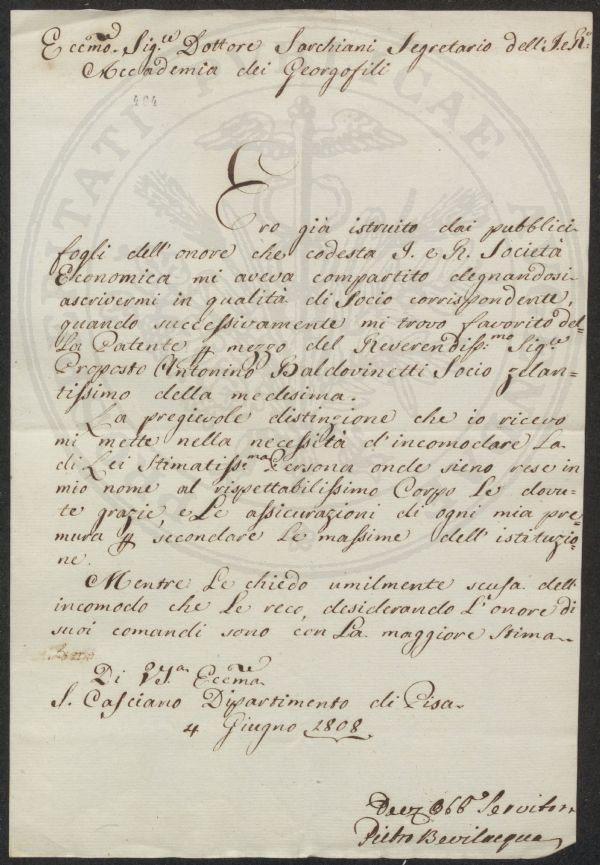 Eccmo. Sig.re Dottore Sarchiani Segretario dell' I. e R.
Accademia dei Georgofili
404
Ero già istruito dai pubblici
fogli dell' onore che codesta I. e R. Società
Economica mi aveva compartito degnandosi
ascrivermi in qualità di Socio corrispondente,
quando successivamente mi trovo favorito del-
la Patente p mezzo del Reverendiss:mo Sig.re
Proposto Antonino Baldovinetti Socio zelan-
tissimo della medesima.
La pregievole distinzione che io ricevo
mi mette nella necessità d'incomodare La
di Lei Stimatiss:ma Persona onde sieno rese in
mio nome al rispettabilissimo Corpo le dovu-
te grazie, e Le assicurazioni di ogni mia pre-
mura p secondare Le massime dell' istituzio-
ne.
Mentre Le chiedo umilmente scusa dell'
incomodo che Le reco, desiderando L'onore di
suoi comandi sono con La maggiore Stima
Di V.S.a Eccma
S. Casciano Dipartimento di Pisa
4 Giugno 1808
Devmo Obbo Servitore
Pietro Bevilacqua